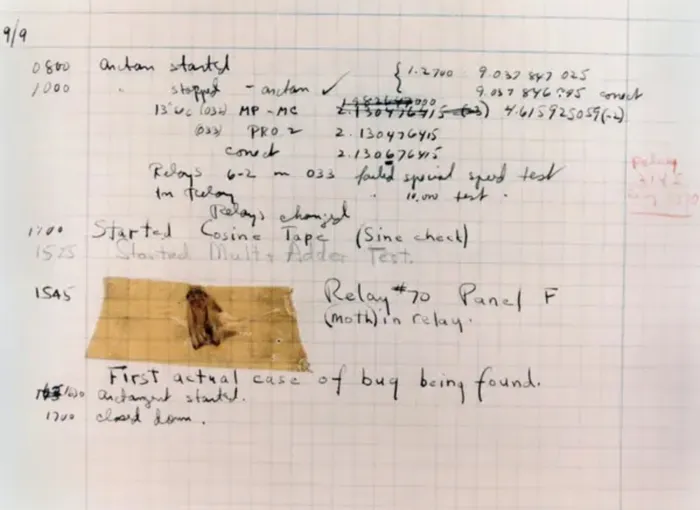 9/9
0800 arctan started { 1.2700 9.037 847 025
1000 " stopped - arctan ✓ 9.037 846 795 correct
13"uc (032) MP - MC 2.130476415 (-3) 4.615925059(-2)
(033) PRO 2 2.130476415
correct 2.130676415
Relays 6-2 in 033 failed special speed test
In Relay " 10,000 test.
Relay
Relays changed
1700 Started Cosine Tape (Sine check)
1525 Started Mult+Adder Test.
1545 Relay #70 Panel F
(moth) in relay.
First actual case of bug being found.
1630 arctangent started.
1700 closed down.